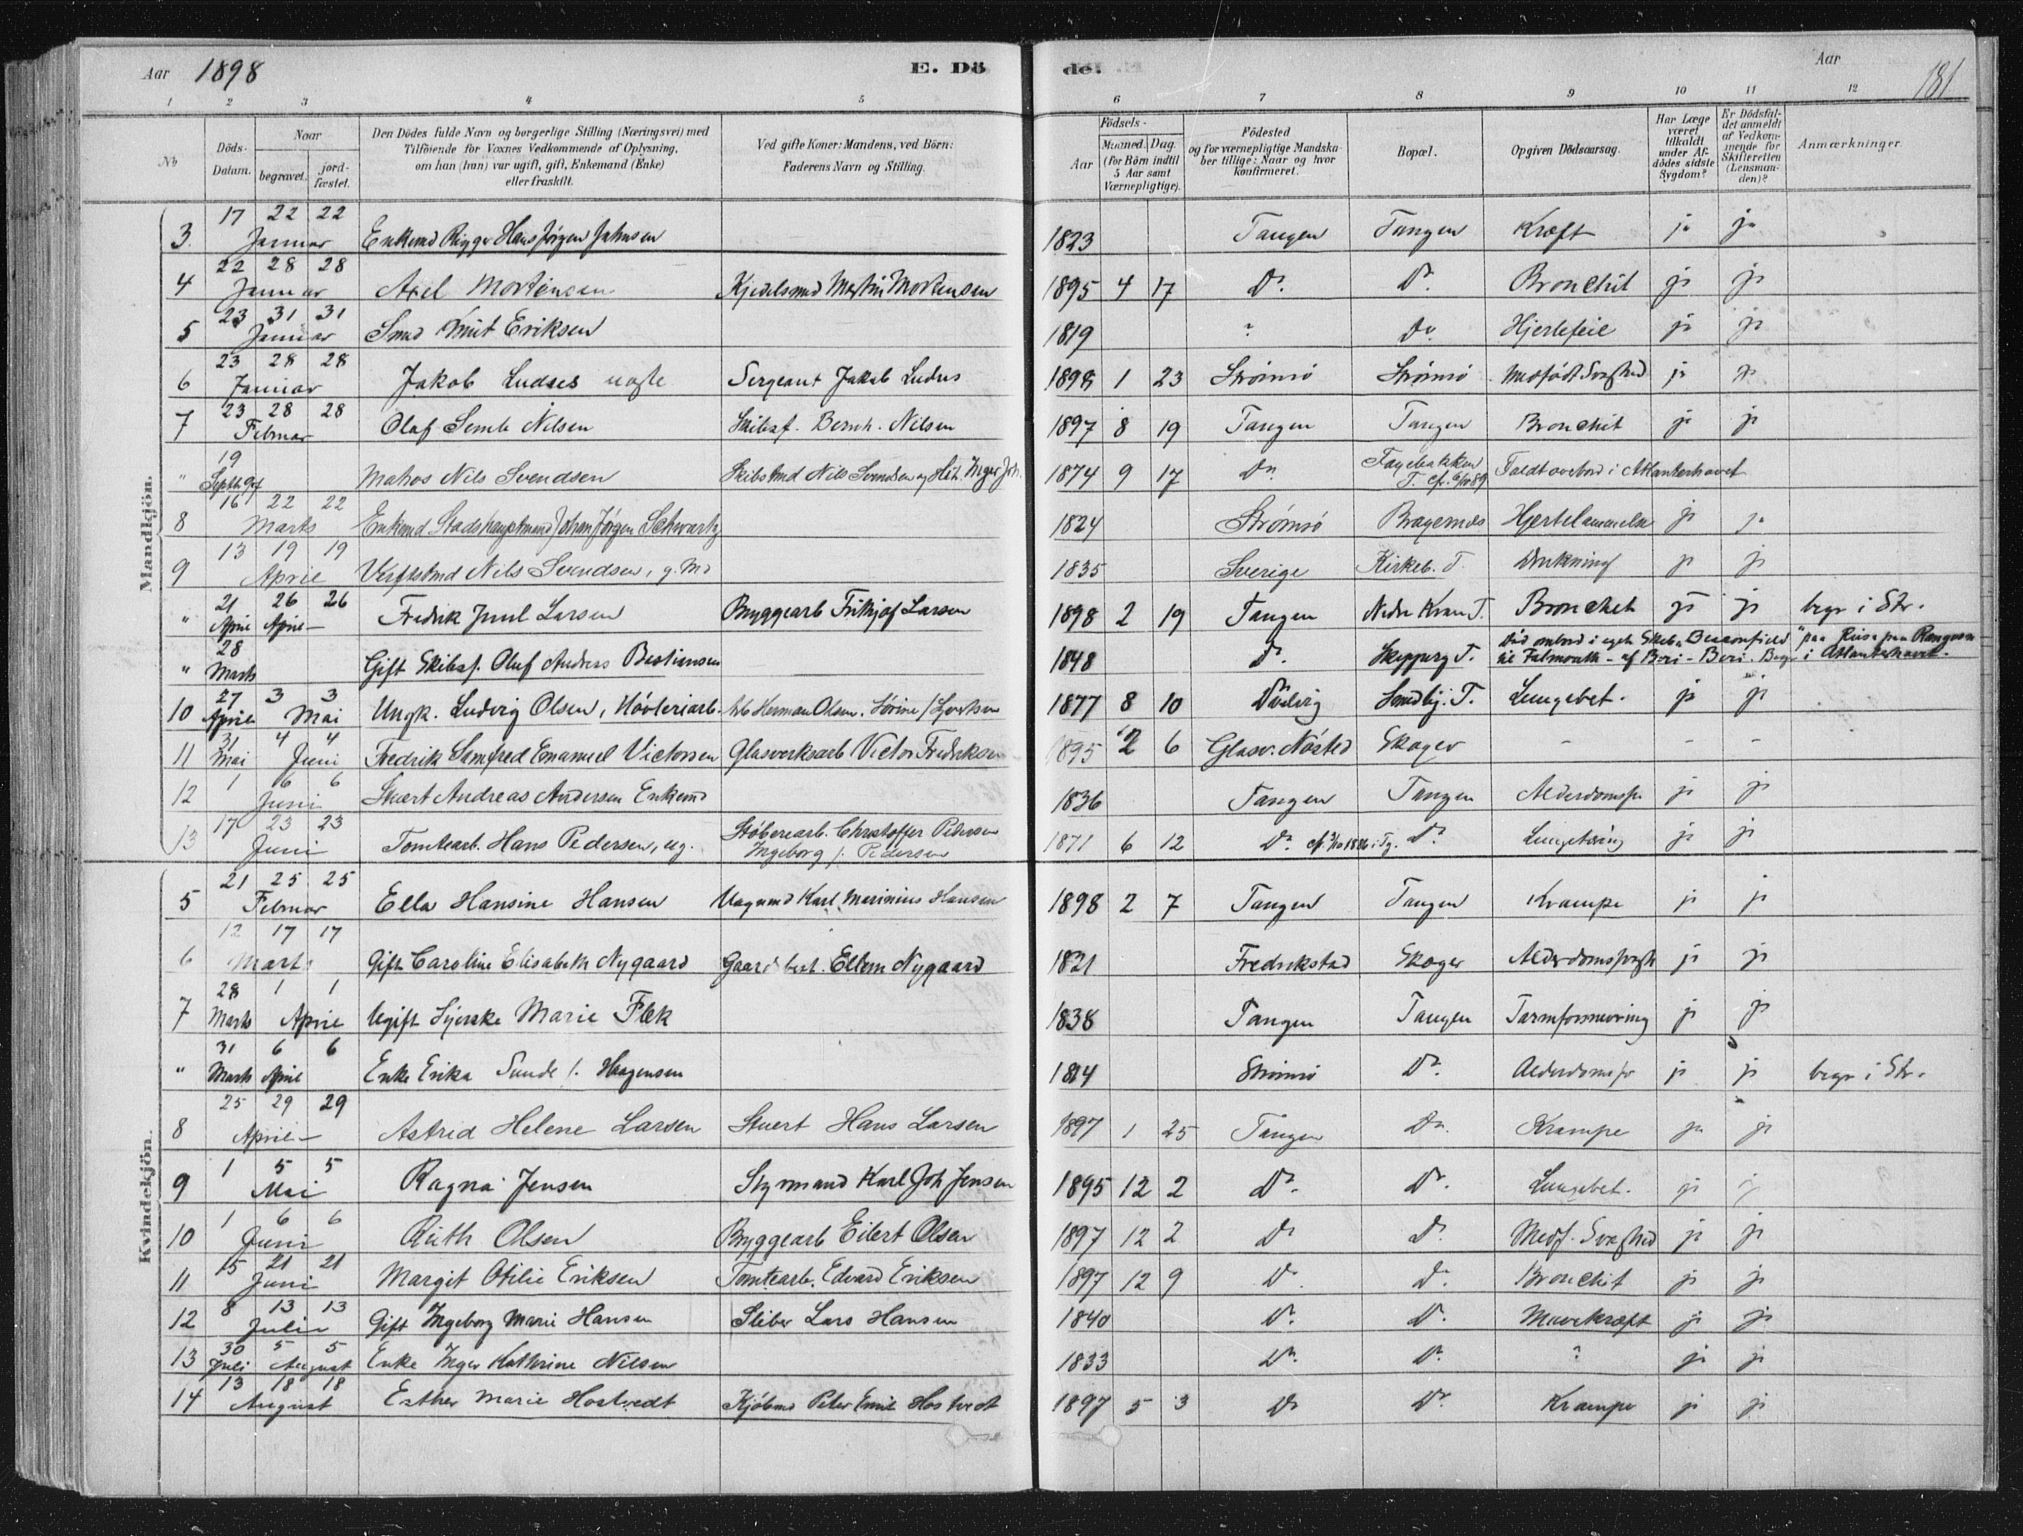 Aar 1898 E. Dö de. Aar 181
1 2 3 4 5 6 7 8 9 10 11 12
No Döds-Datum. Naar begravet. jord-fæstet. Den Dödes fulde Navn og borgerlige Stilling (Næringsvei) med Tilföiende for Voxnes Vedkommende af Oplysning, om han (hun) var ugift, gift, Enkemand (Enke) eller fraskilt. Ved gifte Koner: Mandens, ved Börn: Faderens Navn og Stilling. Födsels- Aar Maaned. Dag. (for Börn indtil 5 Aar samt Værnepligtige). Födested og for værnepligtige Mandskaber tillige: Naar og hvor konfirmeret. Bopæl. Opgiven Dödsaarsag. Har Læge været tilkaldt under Afdödes sidste Sygdom? Er Dödsfaldet anmeldt af Vedkommende for Skifteretten (Lensmanden)? Anmærkninger.
Mandkjön.
3. 17 22 22 Januar Enkemd Rigger Hans Jørgen Jahnsen 1823 Tangen Tangen Kræft ja ja
4 22 28 28 Januar Axel Mortensen Kjedelsmed Martin Mortensen 1895 4 17 Do. Do. Bronchit ja ja
5 23 31 31 Januar Smed Knut Eriksen 1819 " Do. Hjertefeil ja ja
6 23 28 28 Januar Jakob Ludses Sergeant Jakob Ludses 1898 1 23 Strømsø Strømsø Medfødt Svaghed ja ja
7 23 28 28 Februar Olaf Semb Nilsen Skibsf. Bernh. Nilsen 1897 8 19 Tangen Tangen Bronchit ja ja
" 19 Septb. Matros Nils Svendsen Skibstmd Nils Svendsen og Inger Joh. 1874 9 17 Do. Tagebakken T. Faldt overbord i Atlanterhavet
8 16 22 22 Marts Enkemd Stadshauptmand Johan Jørgen Schwartz 1824 Strømsø Bragernes Hjertelammelse ja ja
9 13 19 19 April Nils Svendsen, g. Md 1835 Sverige Kirkeb. T. Drukning ja ja
" 21 26 26 April April Fredrik Juul Larsen Byggearb Frithjof Larsen 1898 2 19 Tangen Nedre Kran T. Bronchit ja ja begr i Str.
" 28 Marts Gift Skibsf. Oluf Andreas Bestiansen 1848 Do. T. Død ombord i eget Skib "Beaconsfield" paa Reise fra Rangoon til Falmouth - af Beri-Beri. Begr i Atlanterhavet.
10 27 3 3 April Mai Ungk. Ludvig Olsen, Høvleriarb. Arb Herman Olsen. 1877 8 10 Døvisvig Smedbj. T. Lungebet. ja ja
11 31 4 4 Mai Juni Fredrik Samfred Emanuel Victorsen Glasverksarb Victor Fredriksen 1895 2 6 Glasv. Nøsted Skoger - - -
12 1 6 6 Juni Stuert Andreas Andersen Enkemd 1836 Tangen Tangen Alderdomssv ja ja
13 17 23 23 Juni Tomtearb. Hans Pedersen, ug. Støberearb. Christoffer Pedersen Ingeborg f. Pedersen 1871 6 12 Do. Do. Lungetæring ja ja
Kvindekjön.
5 21 25 25 Februar Ella Hansine Hansen Vognmd Karl Marinius Hansen 1898 2 7 Tangen Tangen Krampe ja ja
6 12 17 17 Marts Gift Caroline Elisabeth Nygaard Gaardbest. Ellem Nygaard 1821 Fredrikstad Skoger Alderdomssvagh ja ja
7 28 1 1 Marts April Ugift Syerske Marie Flek 1838 Tangen Tangen Tarmforsnevring ja ja
" 31 6 6 Marts April Enke Erika Sunde f. Haagensen 1814 Strømsø Do. Alderdomssv ja ja begr i Str.
8 25 29 29 April Astrid Helene Larsen Stuert Hans Larsen 1897 1 25 Tangen Do. Krampe ja ja
9 1 5 5 Mai Ragna Jensen Styrmand Karl Joh Jensen 1895 12 2 Do. Do. Lungebet. ja ja
10 1 6 6 Juni Ruth Olsen Byggearb Eilert Olsen 1897 12 2 Do Do. Medf. Svaghed ja ja
11 15 21 21 Juni Margit Otilie Eriksen Tomtearb. Edvard Eriksen 1897 12 9 Do. Do. Bronchit ja ja
12 8 13 13 Juli Gift Ingeborg Marie Hansen Sliber Lars Hansen 1840 Do. Do. Mavekræft ja ja
13 30 5 5 Juli August Enke Inger Kathrine Nilsen 1833 Do. Do. ? ja ja
14 13 18 18 August Esther Marie Hostvedt Kjøbmd Peter Emil Hostvedt 1897 5 3 Do Do. Krampe ja ja